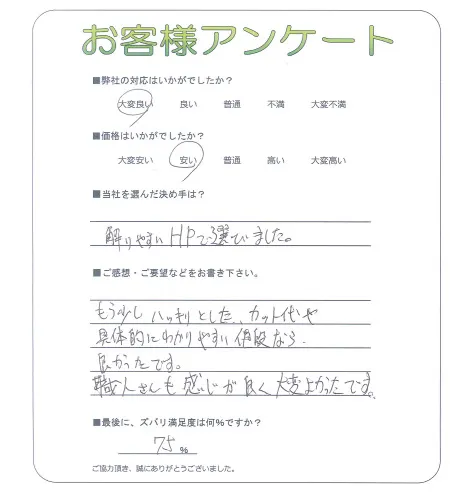 お客様アンケート
■弊社の対応はいかがでしたか？
大変良い 良い 普通 不満 大変不満
■価格はいかがでしたか？
大変安い 安い 普通 高い 大変高い
■当社を選んだ決め手は？
解りやすいHPで選びました。
■ご感想・ご要望などをお書き下さい。
もう少しハッキリとした、カット代や
具体的にわかりやすい値段なら
良かったです。
職人さんも感じが良く大変よかったです。
■最後に、ズバリ満足度は何％ですか？
75％
ご協力頂き、誠にありがとうございました。